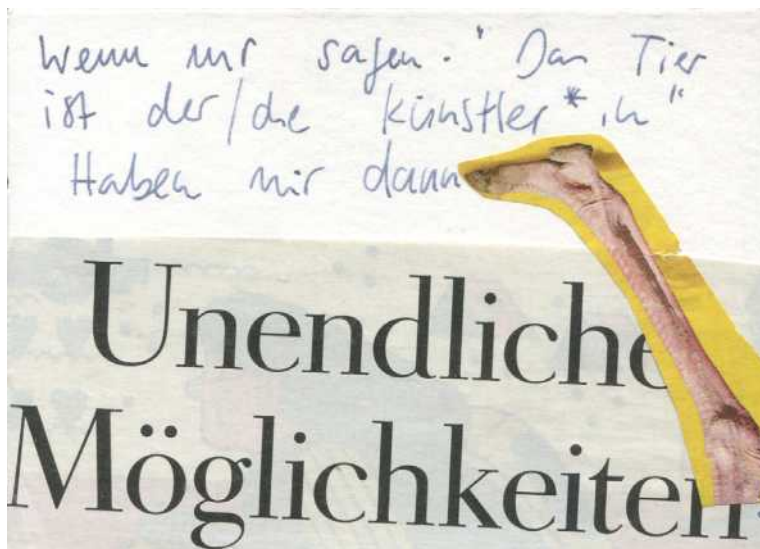 Wenn wir sagen. "Das Tier
ist der/die Künstler*in"
Haben wir dann
Unendliche
Möglichkeiten